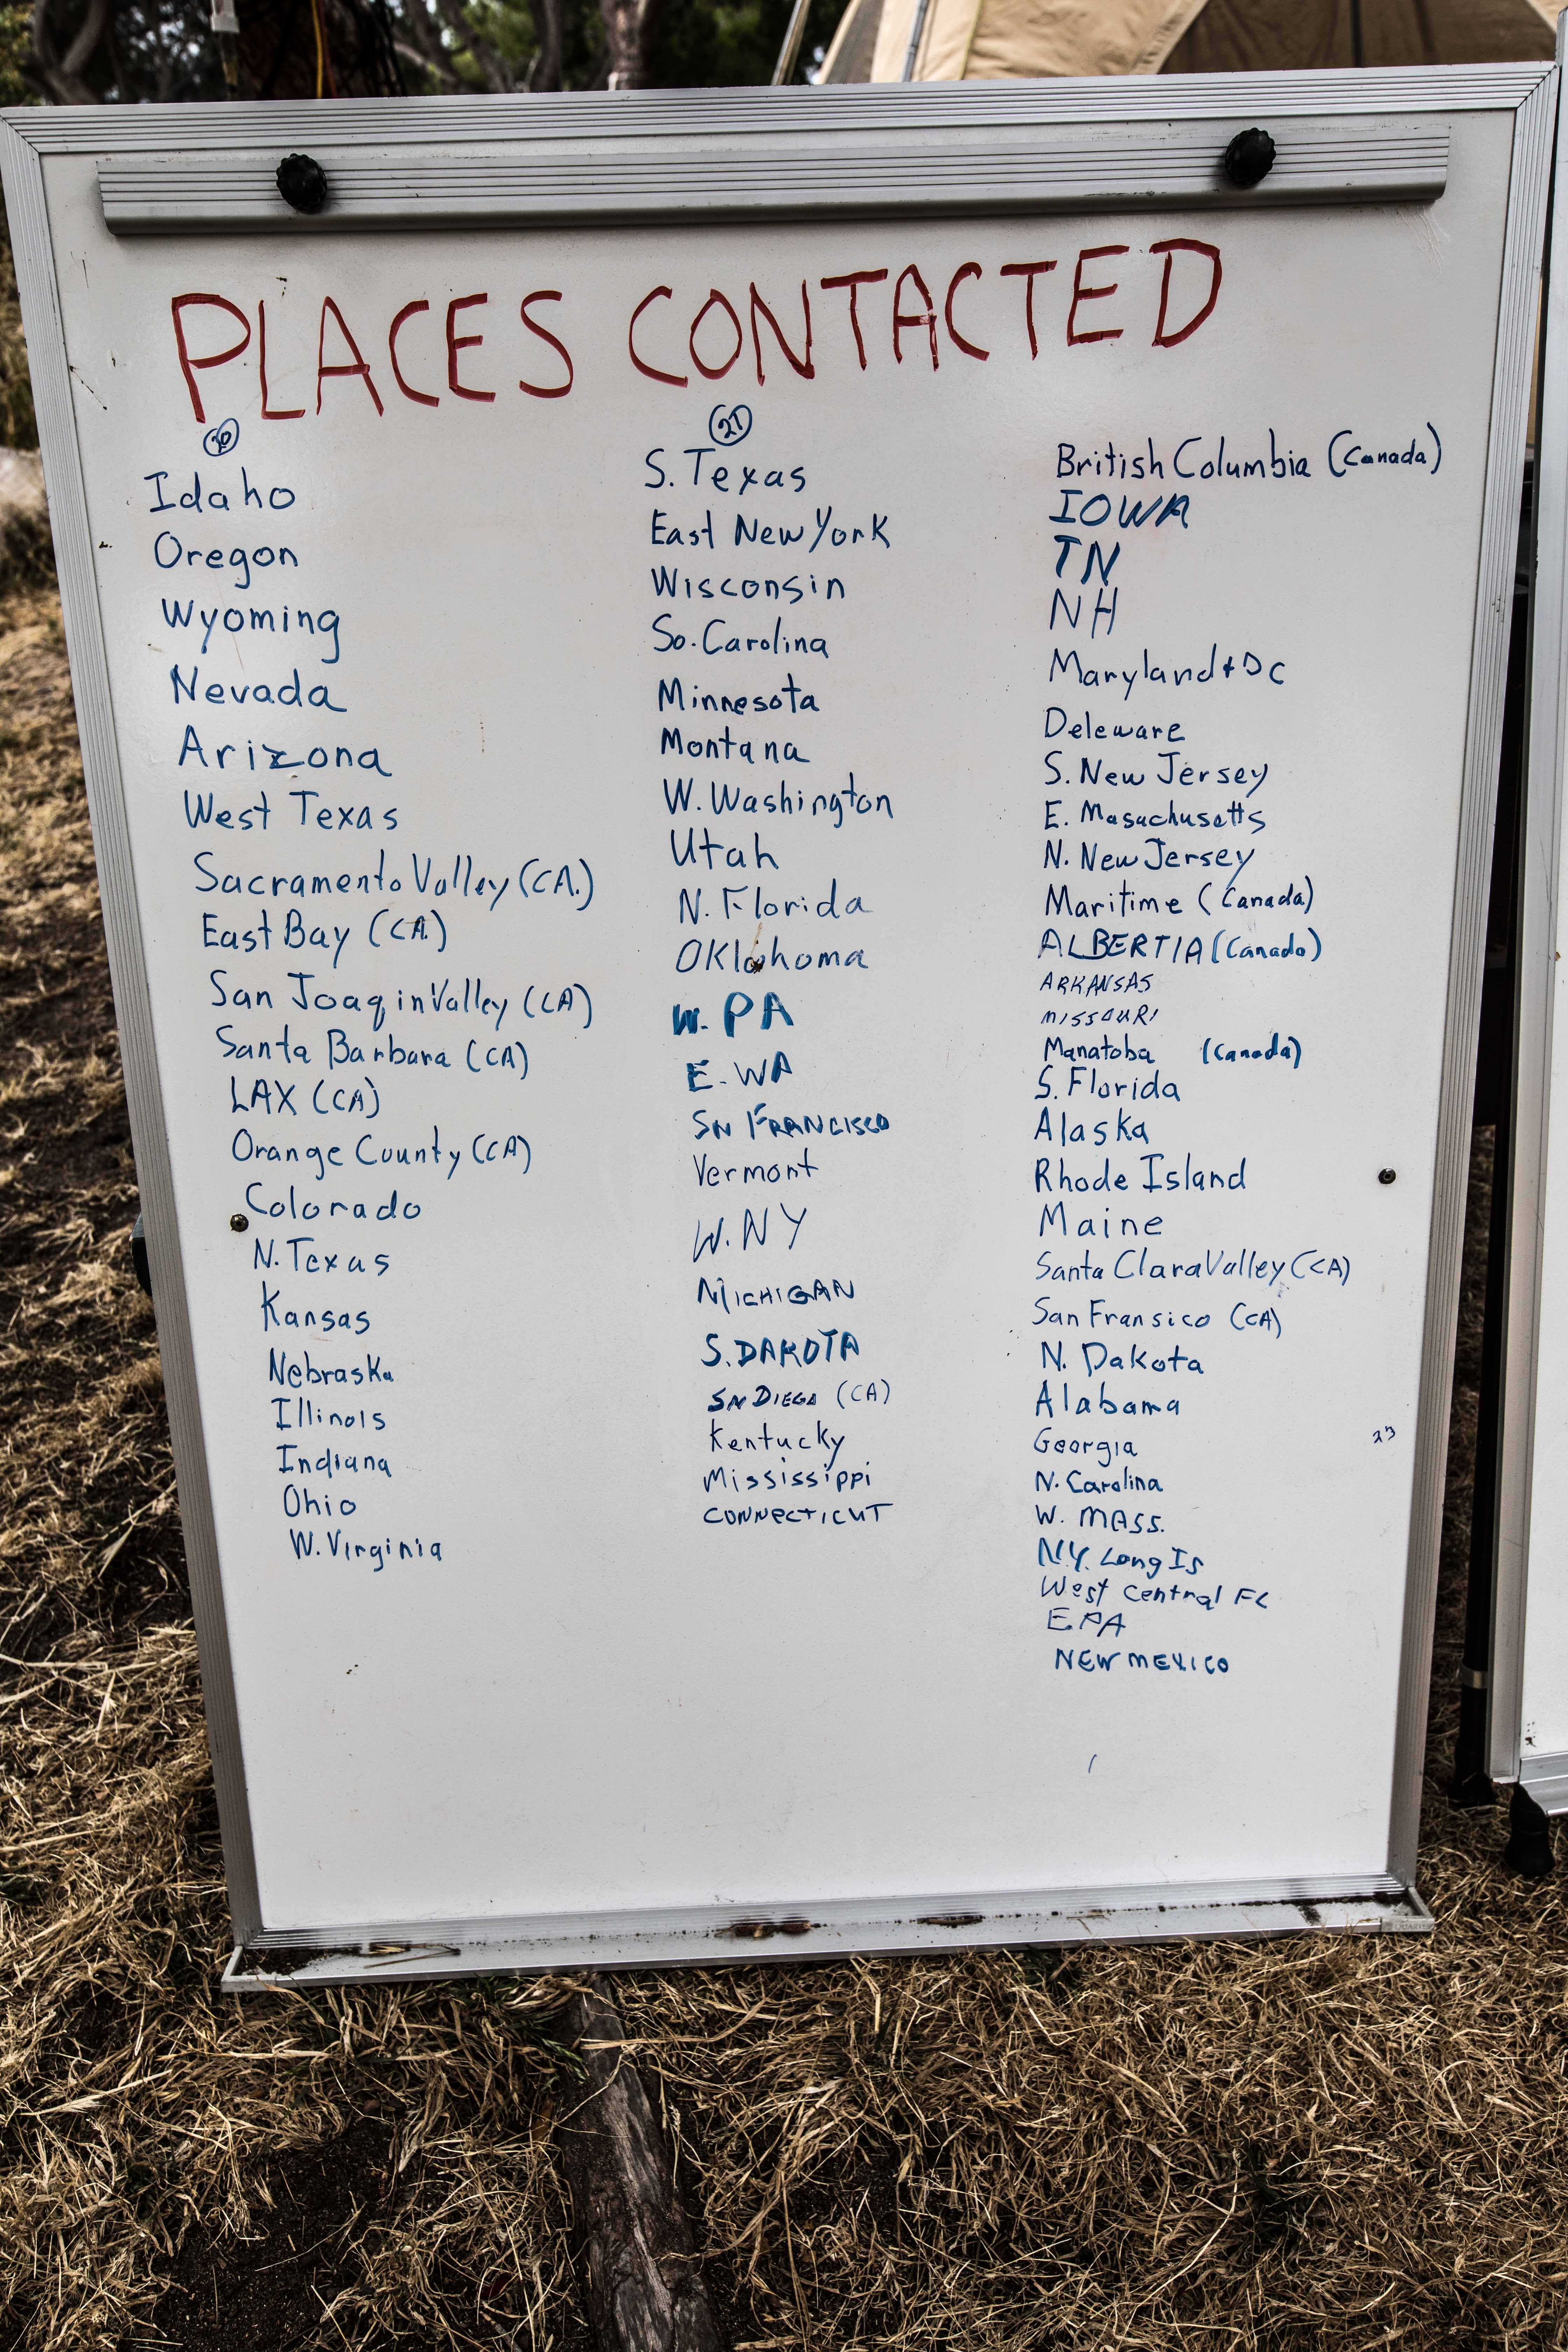 PLACES CONTACTED
20
Idaho
Oregon
Wyoming
Nevada
Arizona
West Texas
Sacramento Valley (CA.)
East Bay (CA)
San Joaqin Valley (CA)
Santa Barbara (CA)
LAX (CA)
Orange County (CA)
Colorado
N. Texas
Kansas
Nebraska
Illinois
Indiana
Ohio
W. Virginia
21
S. Texas
East New York
Wisconsin
So. Carolina
Minnesota
Montana
W. Washington
Utah
N. Florida
Oklahoma
W. PA
E. WA
SN FRANCISCO
Vermont
W. NY
MICHIGAN
S. DAKOTA
SN DIEGO (CA)
Kentucky
Mississippi
CONNECTICUT
British Columbia (Canada)
IOWA
TN
NH
Maryland + DC
Deleware
S. New Jersey
E. Masachusetts
N. New Jersey
Maritime (Canada)
ALBERTIA (Canada)
ARKANSAS
MISSOURI
Manatoba (Canada)
S. Florida
Alaska
Rhode Island
Maine
Santa Clara Valley (CA)
San Fransico (CA)
N. Dakota
Alabama
Georgia 23
N. Carolina
W. MASS.
N.Y. Long Is
West Central FL
E. PA
NEW MEXICO